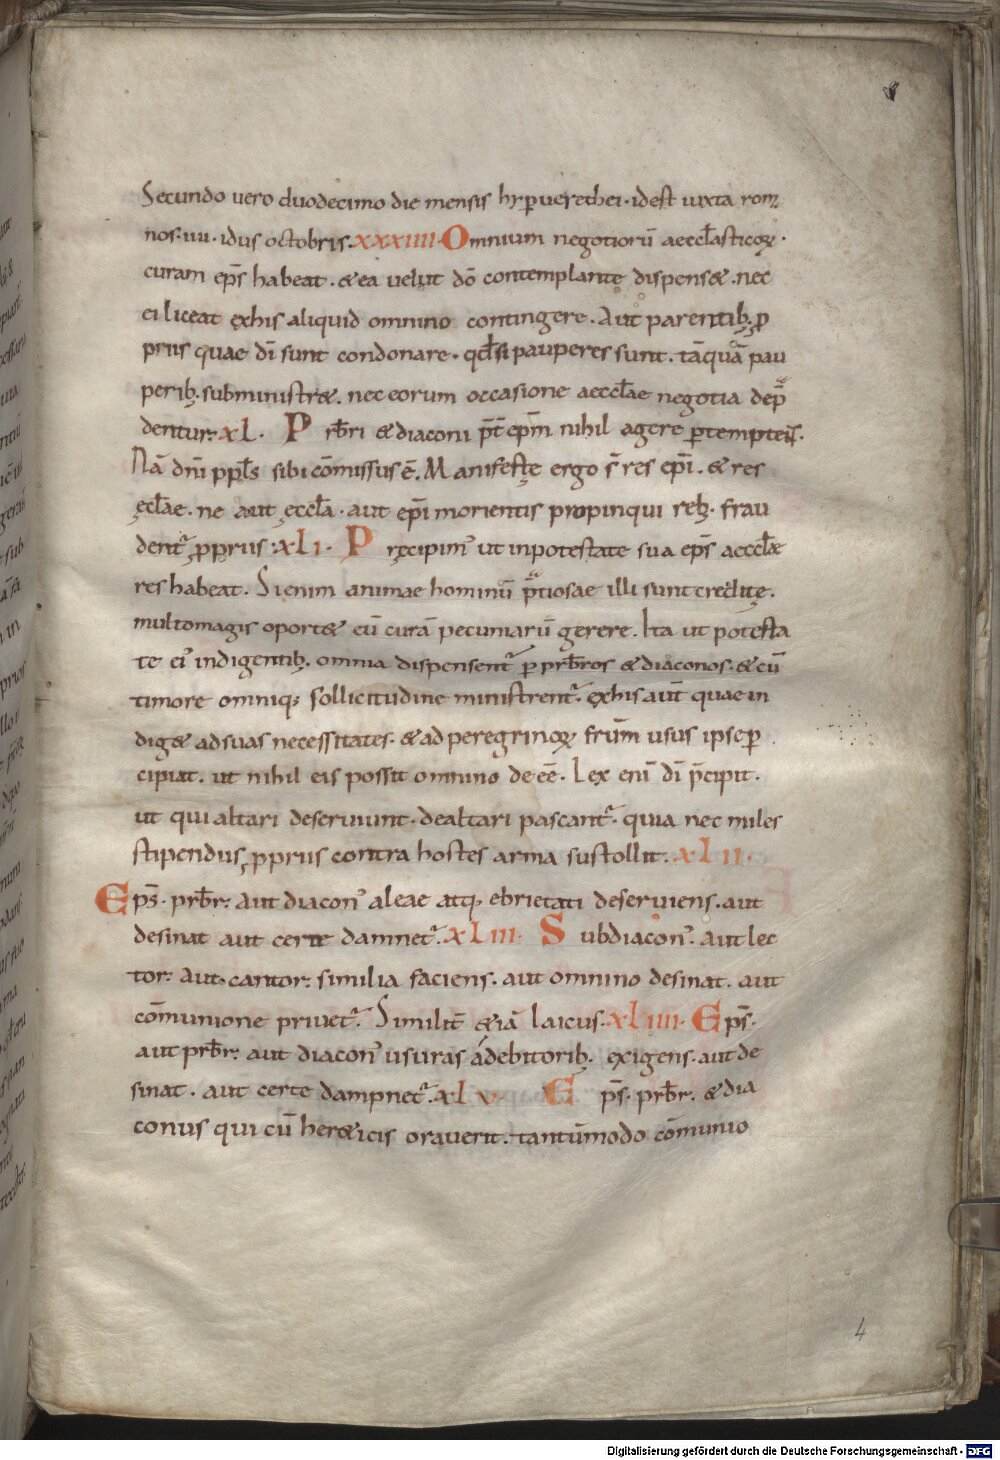 Secundo uero duodecimo die mensis hyꝑuerethei · idest iuxta roma
nos · iiii · idus octobris · xxxviiii · Omnium negotiorū aecclasticoꝝ ·
curam ep̄s habeat · & ea uelut dō contemplante dispens& · nec
ei liceat exhis aliquid omnino contingere · Aut parentib; ꝓ
priis quae dī sunt condonare · qd̄si pauperes sunt · tāquā pau
perib; subministr& · nec eorum occasione aeccłae negotia dep̄
dentur · xL · Prb̄ri & diaconi p̄t ep̄m nihil agere ꝑtemptent ·
Nā dn̄i ppłs sibi cōmissus ē · Manifeste ergo s̄ res ep̄i · & res
ęcłae · ne aut ęccła · aut ep̄i morientis propinqui reb; frau
dentr̄ ꝓpriis : xLi · Pręcipim' ut inpotestate sua ep̄s aeccłae
res habeat · Si enim animae hominū p̄tiosae illi sunt creditę ·
multomagis oport& eū curā pecuniarū gerere · Ita ut potesta
te ei' indigentib; omnia dispensentr̄ ꝑ prb̄ros & diaconos · & cū
timore omniq; sollicitudine ministrentr̄ · exhis aut̄ quae in
dig& adsuas necessitates · & ad peregrinoꝝ frūm usus ipse ꝑ
cipiat · ut nihil eis possit omnino de eē · Lex enī dī p̄cipit ·
ut qui altari deseruiunt · dealtari pascantr̄ · quia nec miles
stipendiis ꝓpriis contra hostes arma sustollit · xLii ·
Ep̄s · prb̄r · aut diacon' aleae atq; ebrietati deseruiens · aut
desinat aut certe damnetr̄ · xLiii · Subdiacon' · Aut lec
tor · Aut cantor · similia faciens · aut omnino desinat · aut
cōmunione priuetr̄ · Similit̄ &iā laicus · xLiiii · Ep̄s ·
aut prb̄r · aut diacon' usuras adebitorib; exigens · aut de
sinat · aut certe dampnetr̄ · xLv · Ep̄s · prb̄r · & dia
conus qui cū her&icis orauerit · tantūmodo cōmunio
4
Digitalisierung gefördert durch die Deutsche Forschungsgemeinschaft - DFG